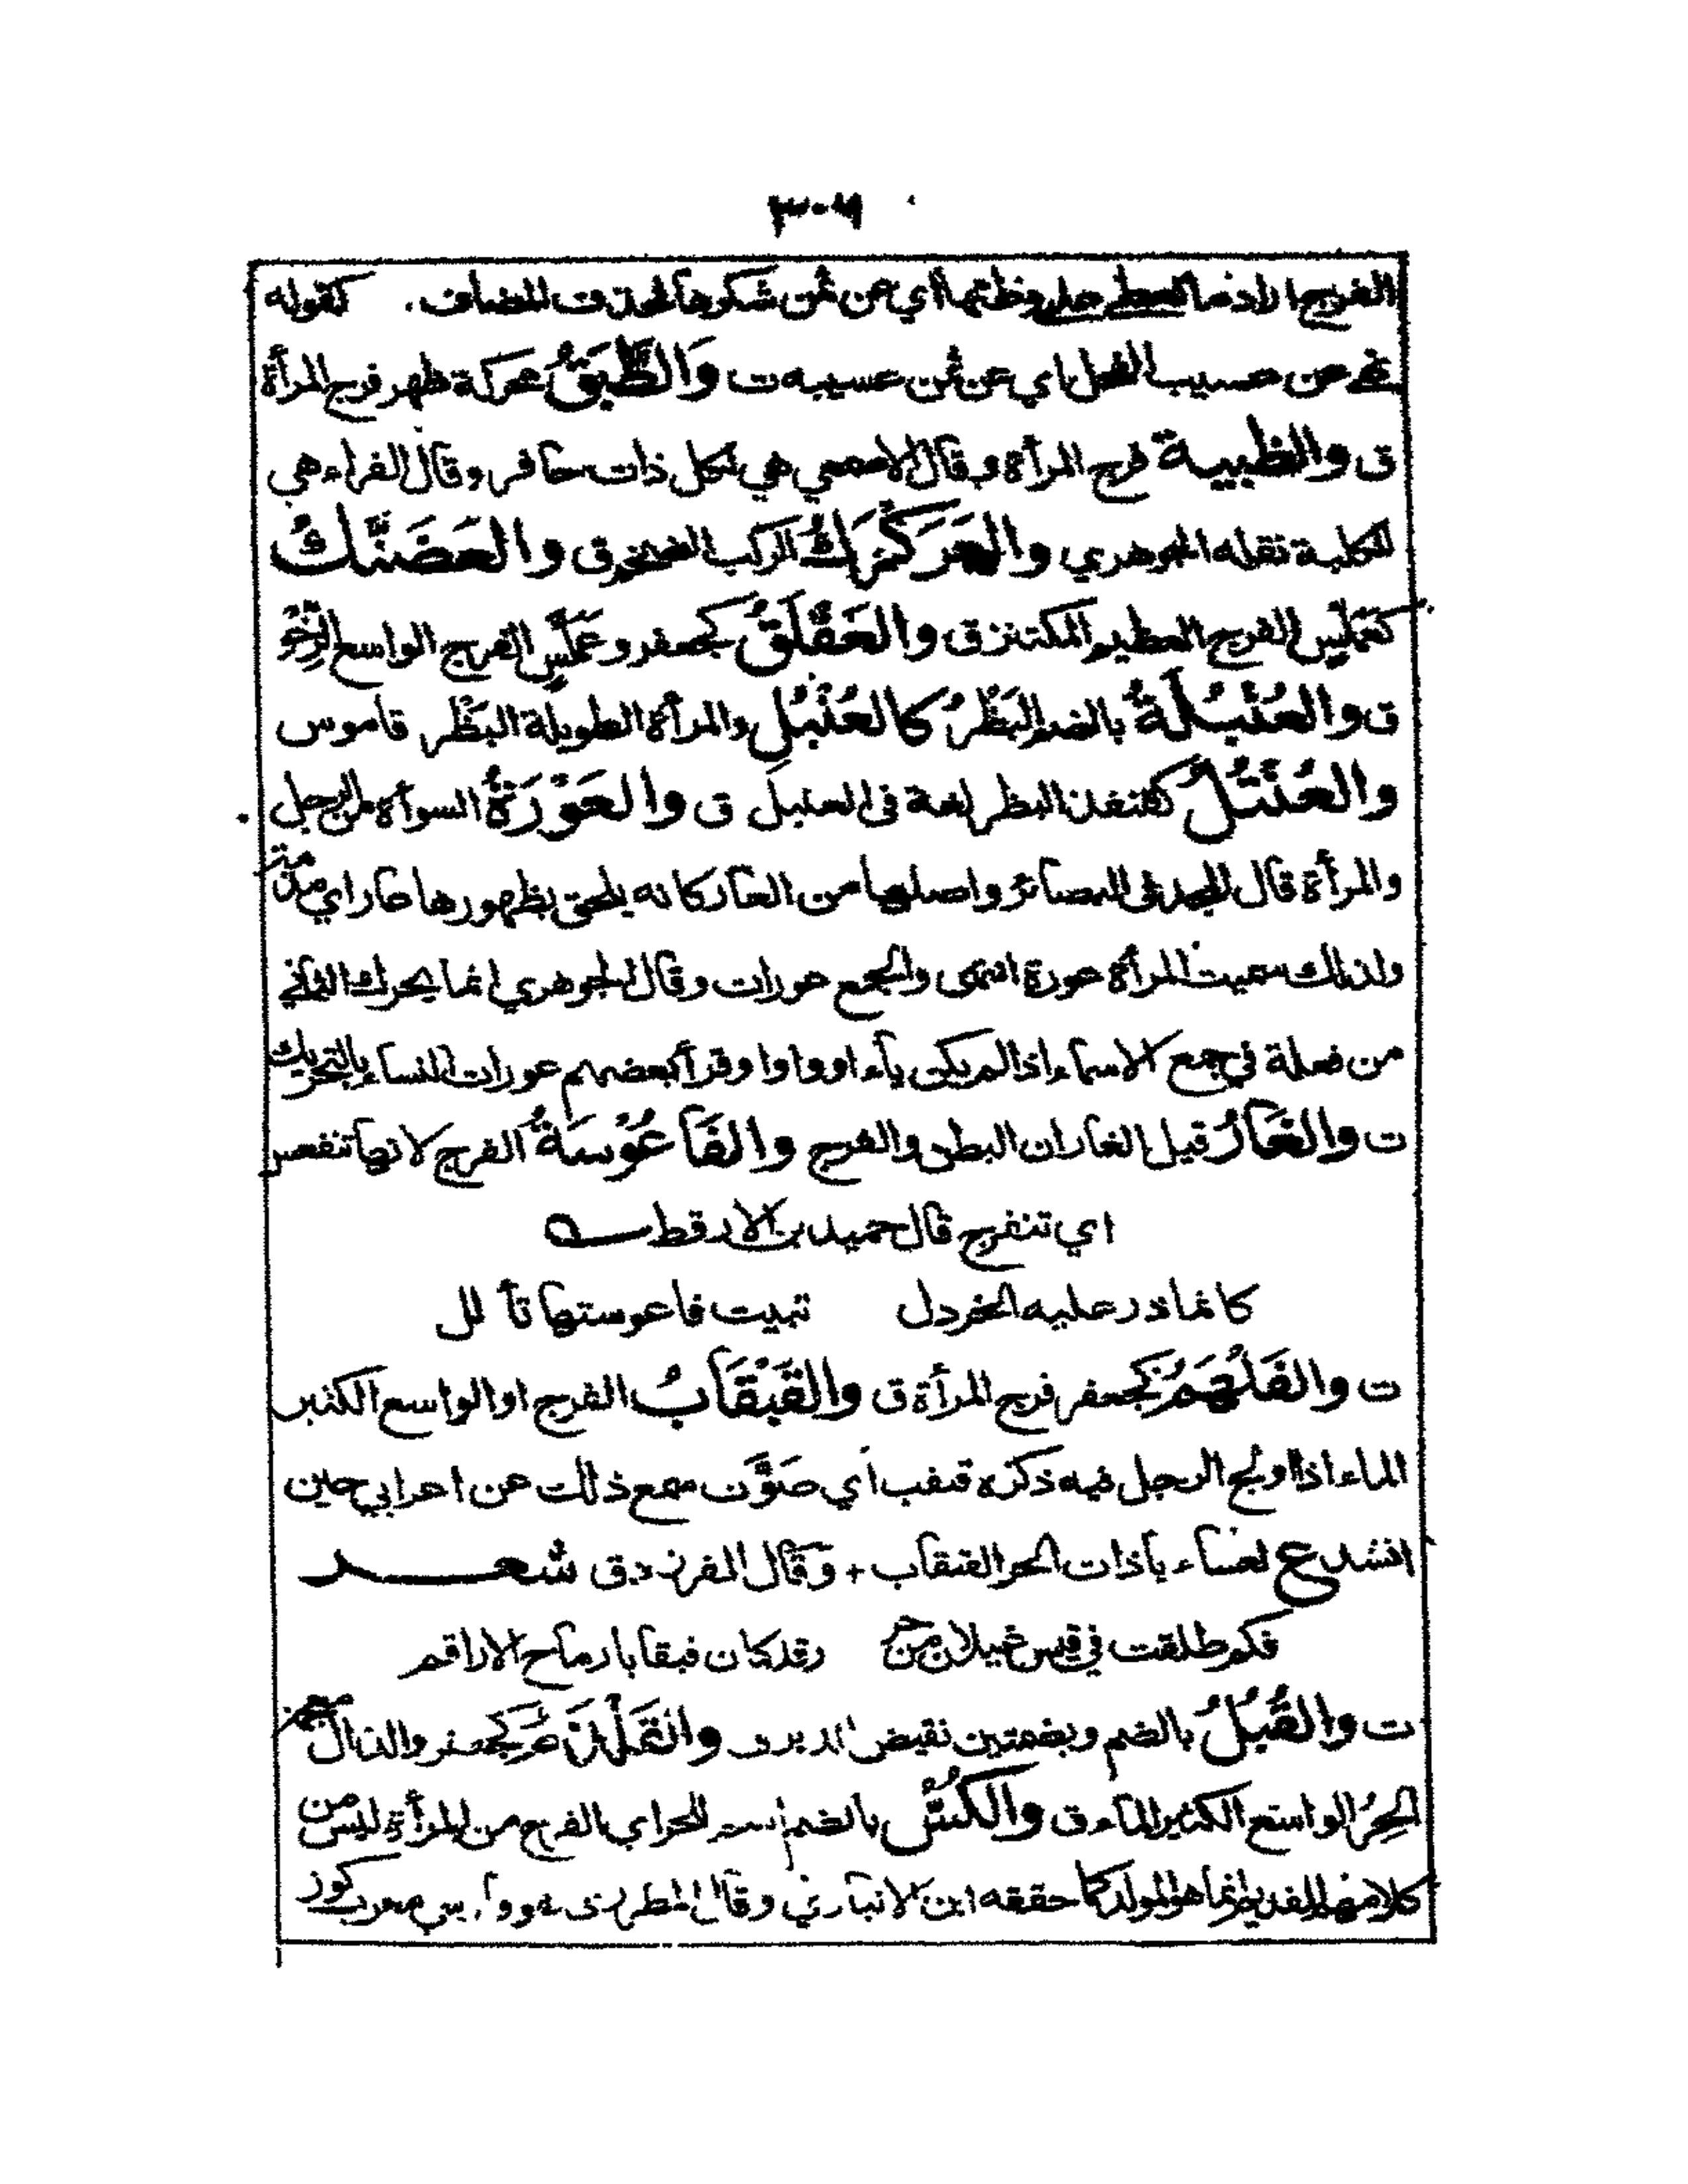 ٣٠٦
الفرج ارادما تعطي على وطئها اي عن ثمن شكرها فحذف المضاف. كقوله
نهى عن عسيب الفحل اي عن ثمن عسيبه ت وَالطَّبَقُ محركة ظهر فرج المرأة
ق والظبية فرج المرأة وقال الاصمعي هي لكل ذات حافر وقال الفراء هي
للكلبة نقله الجوهري والعَرَكْرَكُ الركب الضخم ق والعَضَنَّكُ
كعَمَلَّس الفرج العظيم المكتنز ق والعَفْلَقُ كجعفر وعَمَلَّس الفرج الواسع الرِّخْو
ق والعُنْبُلَةُ بالضم البَظْرُ كالعُنْبُلِ والمرأة الطويلة البَظْر قاموس
والعُنْتُلُ كقنفذ البظر لغة فى العنبل ق والعَوْرَةُ السوأة من الرجل
والمرأة قال المجد فى البصائر واصلها من العار كانه يلحق بظهورها عار اي مذمة
ولذلك سميت المرأة عورة انتهى والجمع عورات وقال الجوهري انما يحرك الثاني
من فعلة في جمع الاسماء اذا لم يكن ياء او واوا وقرأ بعضهم عورات النساء بالتحريك
ت والغَارُ قيل الغاران البطن والفرج والفَاعُوْسَةُ الفرج لانها تنفعس
اي تنفرج قال حميد بن الارقط
كانما ذر عليه الخردل تبيت فاعوستها تألل
ت والفَلْهَمُ كجعفر فرج المرأة ق والقَبْقَابُ الفرج او الواسع الكثير
الماء اذا اولج الرجل فيه ذكره قبقب أي صَوَّت سمع ذلك عن اعرابي حين
انشد ع لعساء ياذات الحر القبقاب + وقَال الفرزدق شعر
فكم طلقت في قيس غيلان من حر وقد كان قبقابا رماح الاراقم
ت والقُبُلُ بالضم وبضمتين نقيض الدبر ق والقَلْذَمُ كجعفر والذال معجمة
الحِرُ الواسع الكثير الماء ق والكُسُّ بالضم اسم للحر اي الفرج من المرأة ليس من
كلامهم القديم انما هو المولد كما حققه ابن الانباري وقال المطرزى هو فارسي معرب كوز